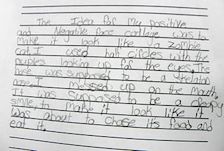 The Idea for My positive
and Negative face collage was to
make it look like a zombie
cat. I used half circles with the
puples looking for the eyes. It
here was supposed to be a skeleton
nose. I messed up on the mouth
It was supposed to be a creepy
smile to make it look like it
was about to chase it's food and
eat it.